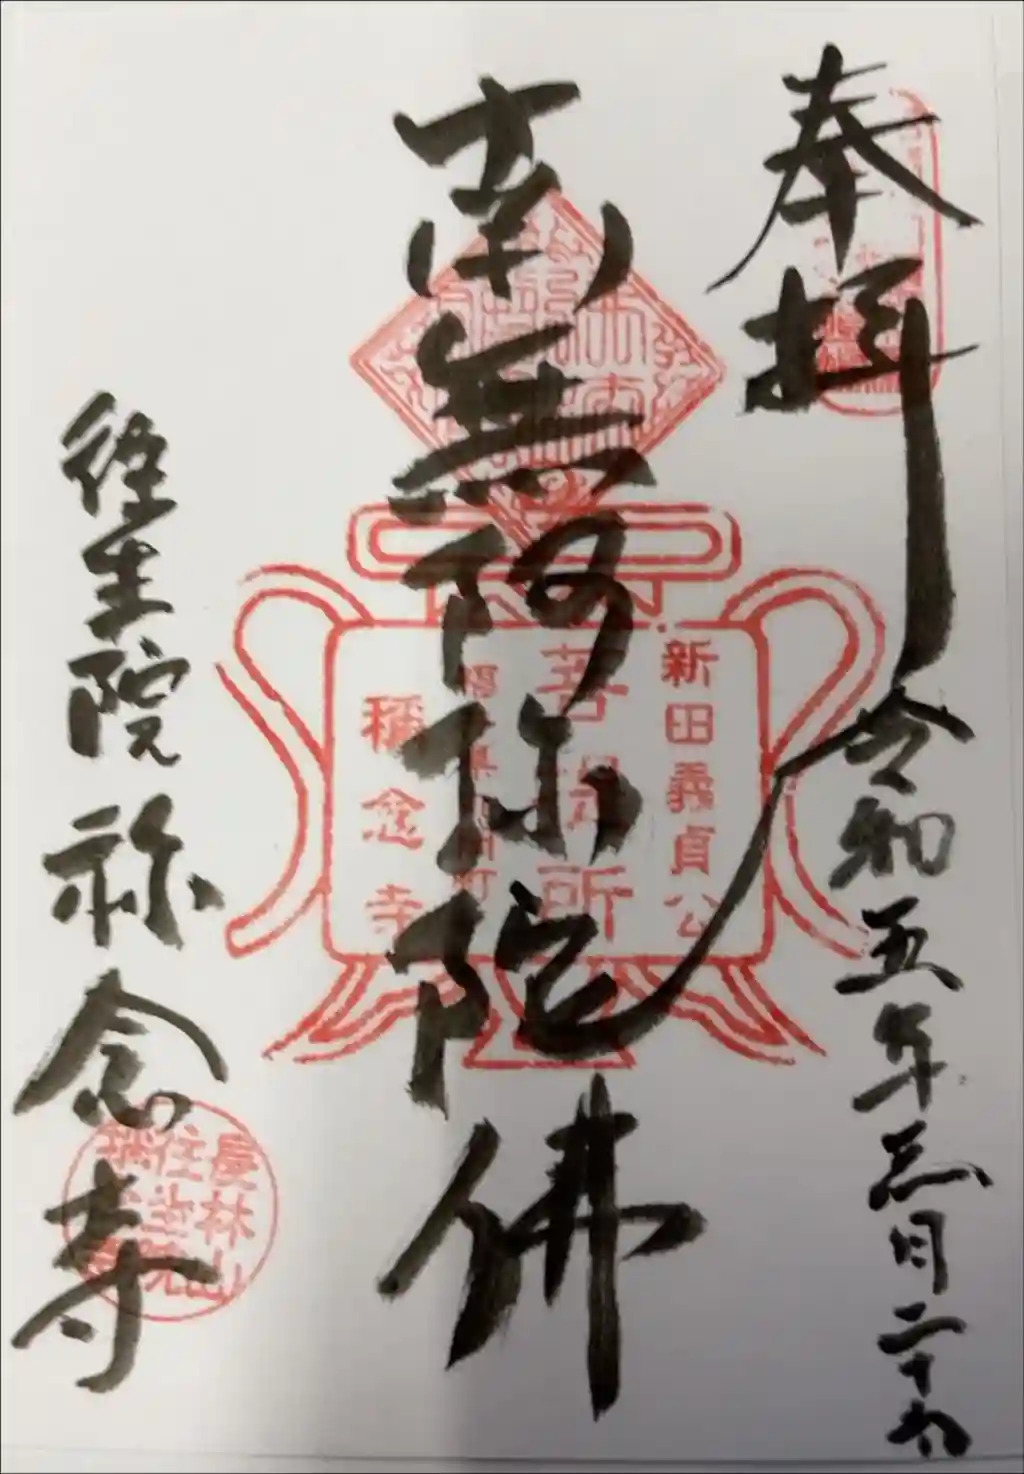 奉拝
令和五年三月二十九
南無阿弥陀佛
新田義貞公
菩提所
稱念寺
往生院 称念寺
長林山
往生院